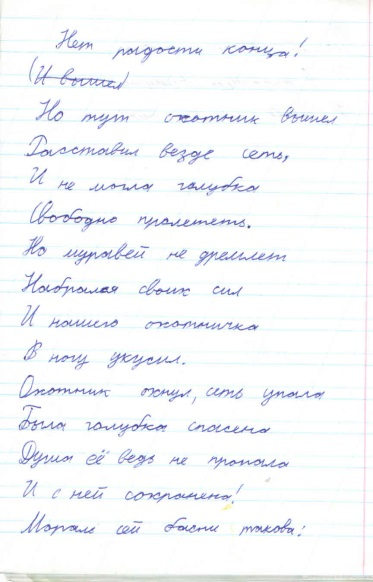 Нет радости конца!
(И вышел)
Но тут охотник вышел
Расставил везде сеть,
И не могла голубка
Свободно пролететь.
Но муравей не дремлет
Набрался своих сил
И нашего охотничка
В ногу укусил.
Охотник охнул, сеть упала
Была голубка спасена
Душа её ведь не пропала
И с ней сохранена!
Мораль сей басни такова: